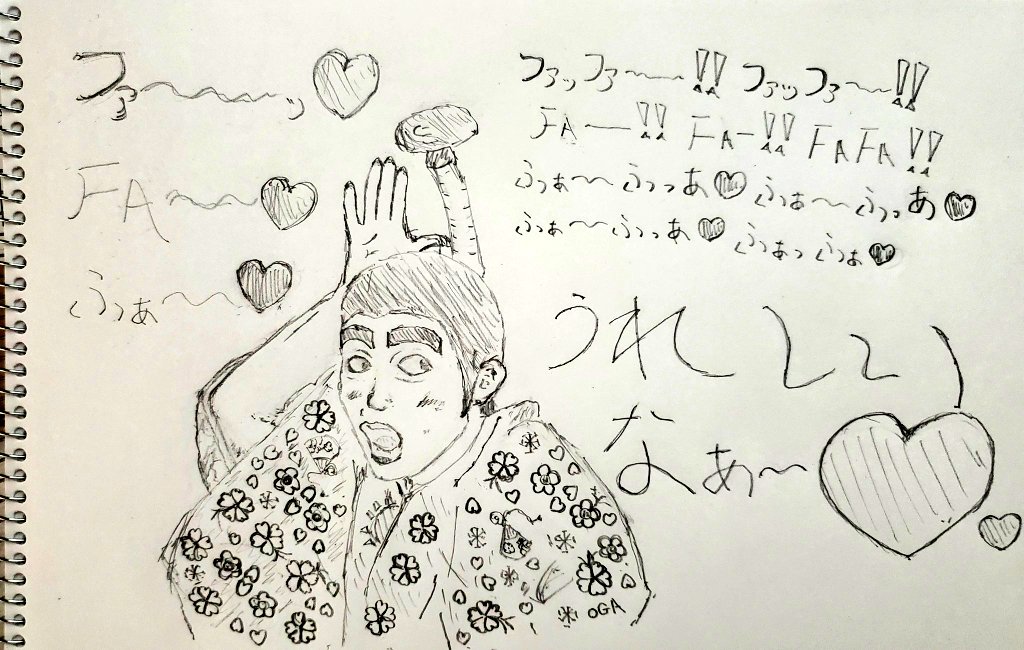 ファ〜〜〜〜ッ♥
FA〜〜♥
ふぁ〜〜♥
ファッファ〜〜!! ファッファ〜〜!!
FA―!! FA-!! FAFA!!
ふっぁ〜〜ふっっあ♥ ふっぁ〜〜ふっっあ♥
ふっぁ〜〜ふっっぁ♥ ふっぁっふっぁ♥
うれしい
なぁ〜♥
oGA